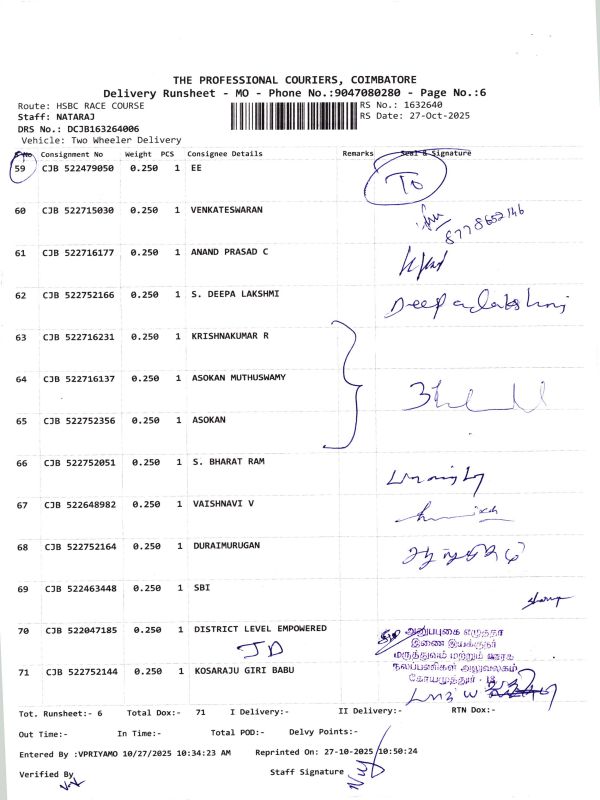 THE PROFESSIONAL COURIERS, COIMBATORE
Delivery Runsheet - MO - Phone No.:9047080280 - Page No.:6
Route: HSBC RACE COURSE RS No.: 1632640
Staff: NATARAJ RS Date: 27-Oct-2025
DRS No.: DCJB163264006
Vehicle: Two Wheeler Delivery
S.No Consignment No Weight PCS Consignee Details Remarks Seal & Signature
59 CJB 522479050 0.250 1 EE TO
60 CJB 522715030 0.250 1 VENKATESWARAN
8778652146
61 CJB 522716177 0.250 1 ANAND PRASAD C
62 CJB 522752166 0.250 1 S. DEEPA LAKSHMI Deepalakshmi
63 CJB 522716231 0.250 1 KRISHNAKUMAR R
64 CJB 522716137 0.250 1 ASOKAN MUTHUSWAMY
65 CJB 522752356 0.250 1 ASOKAN
66 CJB 522752051 0.250 1 S. BHARAT RAM
67 CJB 522648982 0.250 1 VAISHNAVI V
68 CJB 522752164 0.250 1 DURAIMURUGAN
69 CJB 522463448 0.250 1 SBI
70 CJB 522047185 0.250 1 DISTRICT LEVEL EMPOWERED
JD
அனுப்புகை எழுத்தர்
இணை இயக்குநர்
மருத்துவம் மற்றும் ஊரக
நலப்பணிகள் அலுவலகம்
கோயமுத்தூர் - 18
71 CJB 522752144 0.250 1 KOSARAJU GIRI BABU
Tot. Runsheet:- 6 Total Dox:- 71 I Delivery:- II Delivery:- RTN Dox:-
Out Time:- In Time:- Total POD:- Delvy Points:-
Entered By :VPRIYAMO 10/27/2025 10:34:23 AM Reprinted On: 27-10-2025 10:50:24
Verified By Staff Signature